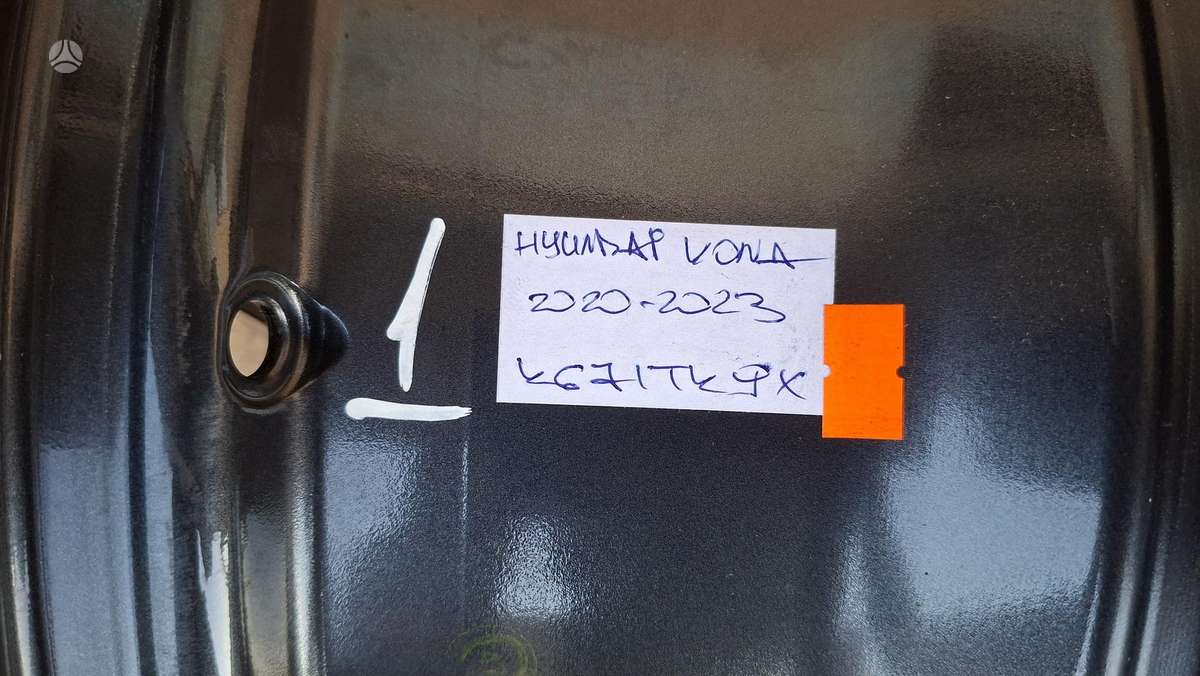 1
HYUNDAI KONA
2020-2023
K671TK9X